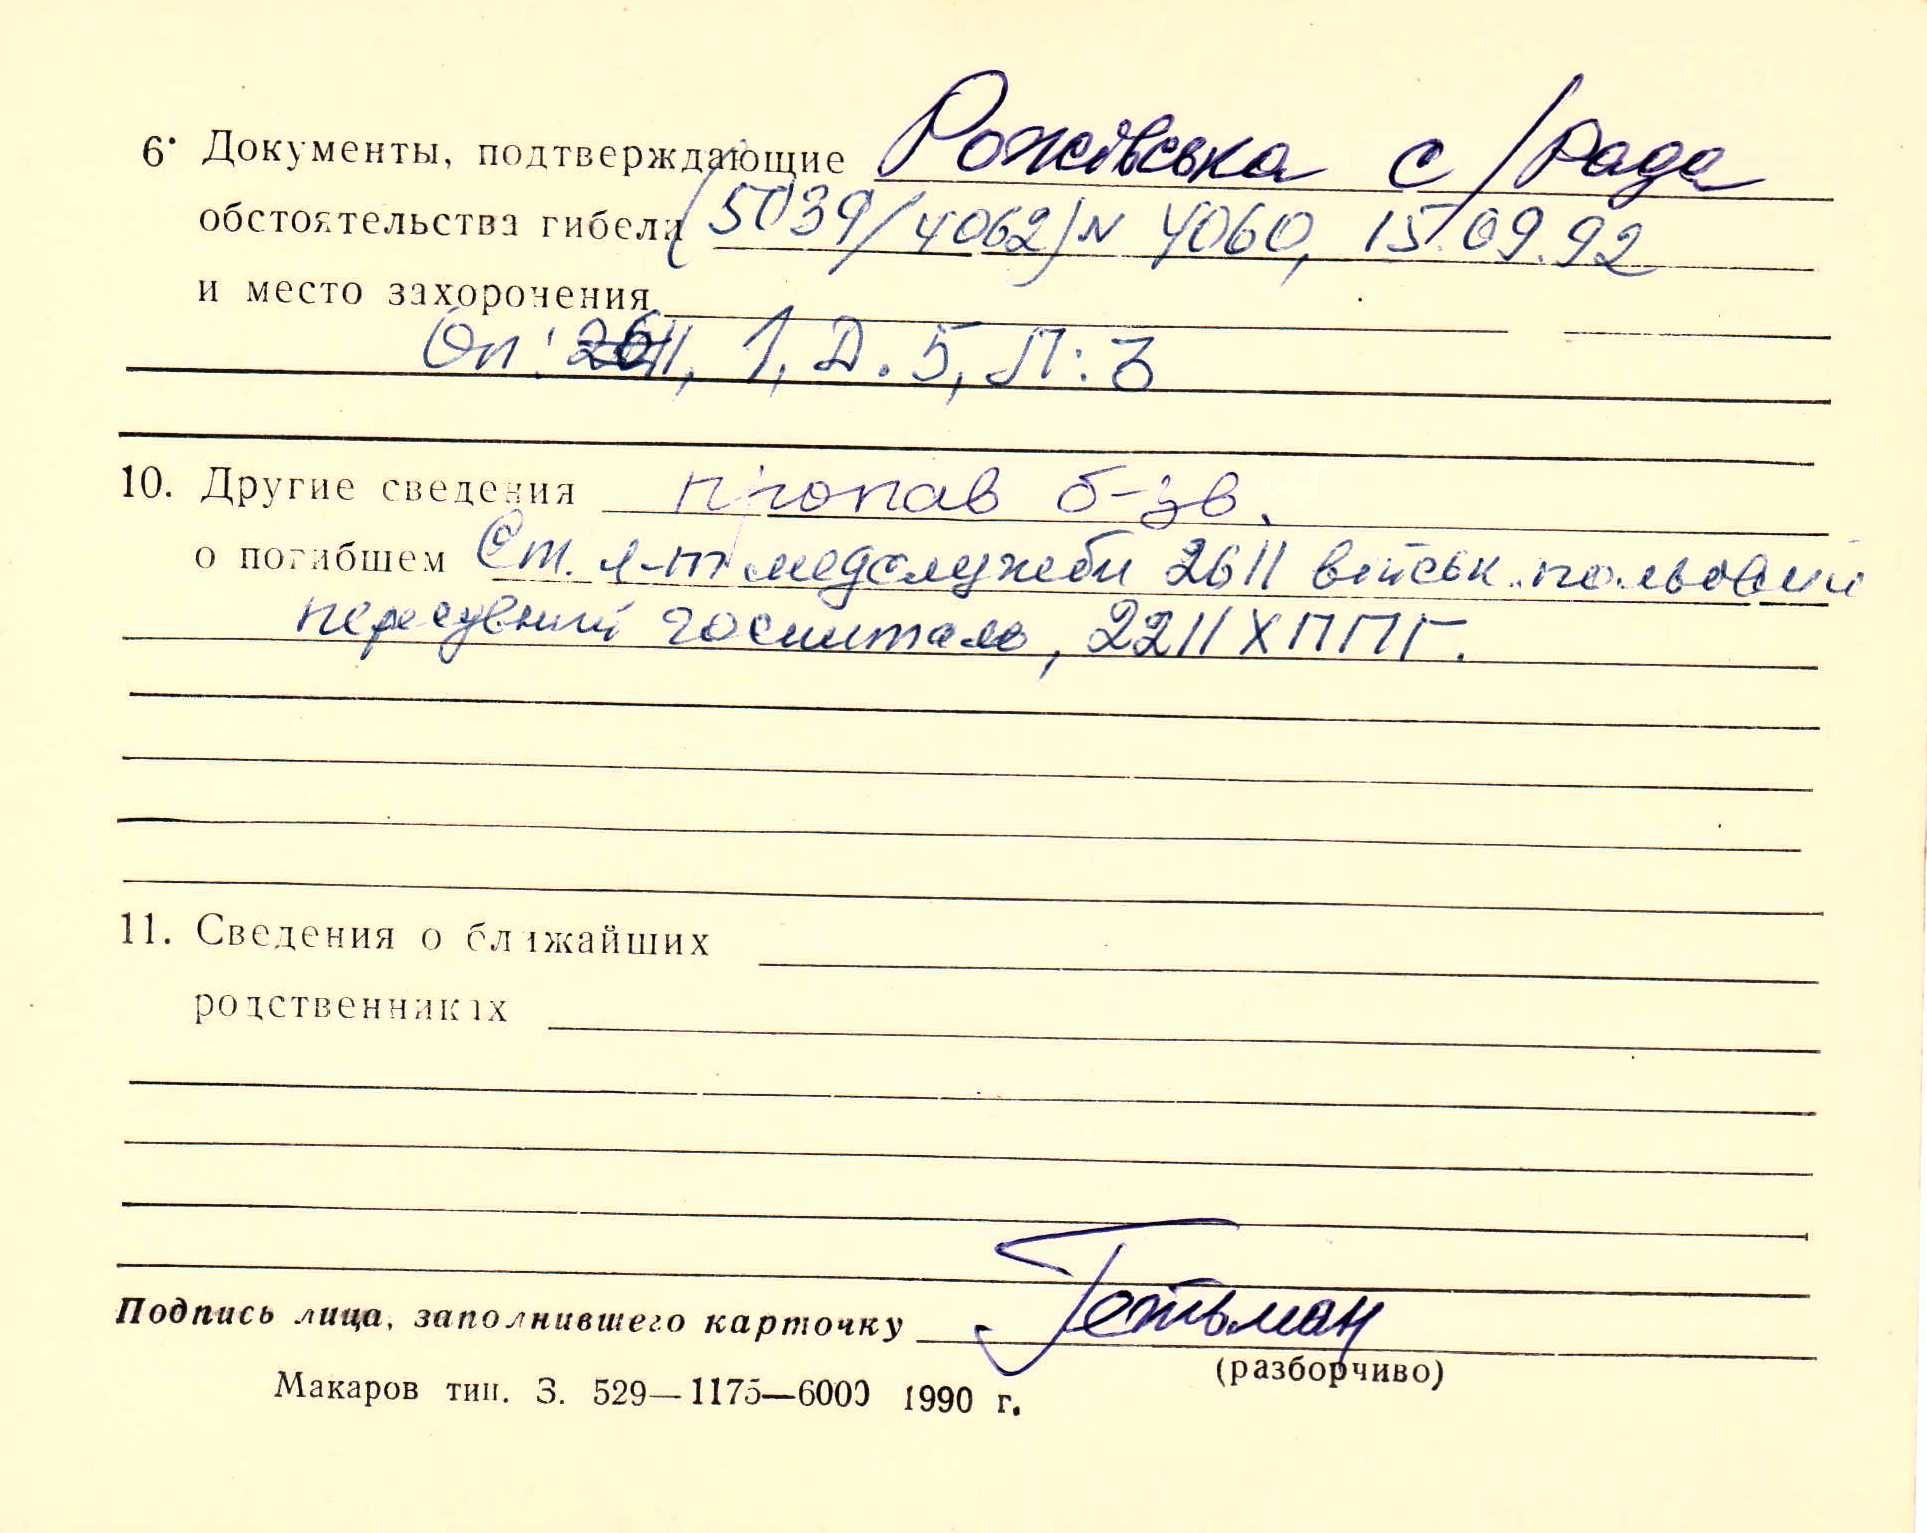 6. Документы, подтверждающие Рожівська с/рада
обстоятельства гибели (5039/4062) N 4060, 15.09.92
и место захоронения
Оп: 2611, 1, Д. 5, Л: 3
10. Другие сведения пропав б-зв.
о погибшем Ст. л-т медслужби 2611 військ. польовий
пересувний госпиталь, 2211 ХППГ.
11. Сведения о ближайших
родственниках
Подпись лица, заполнившего карточку Гетьман
(разборчиво)
Макаров тип. З. 529—1175—6000 1990 г.